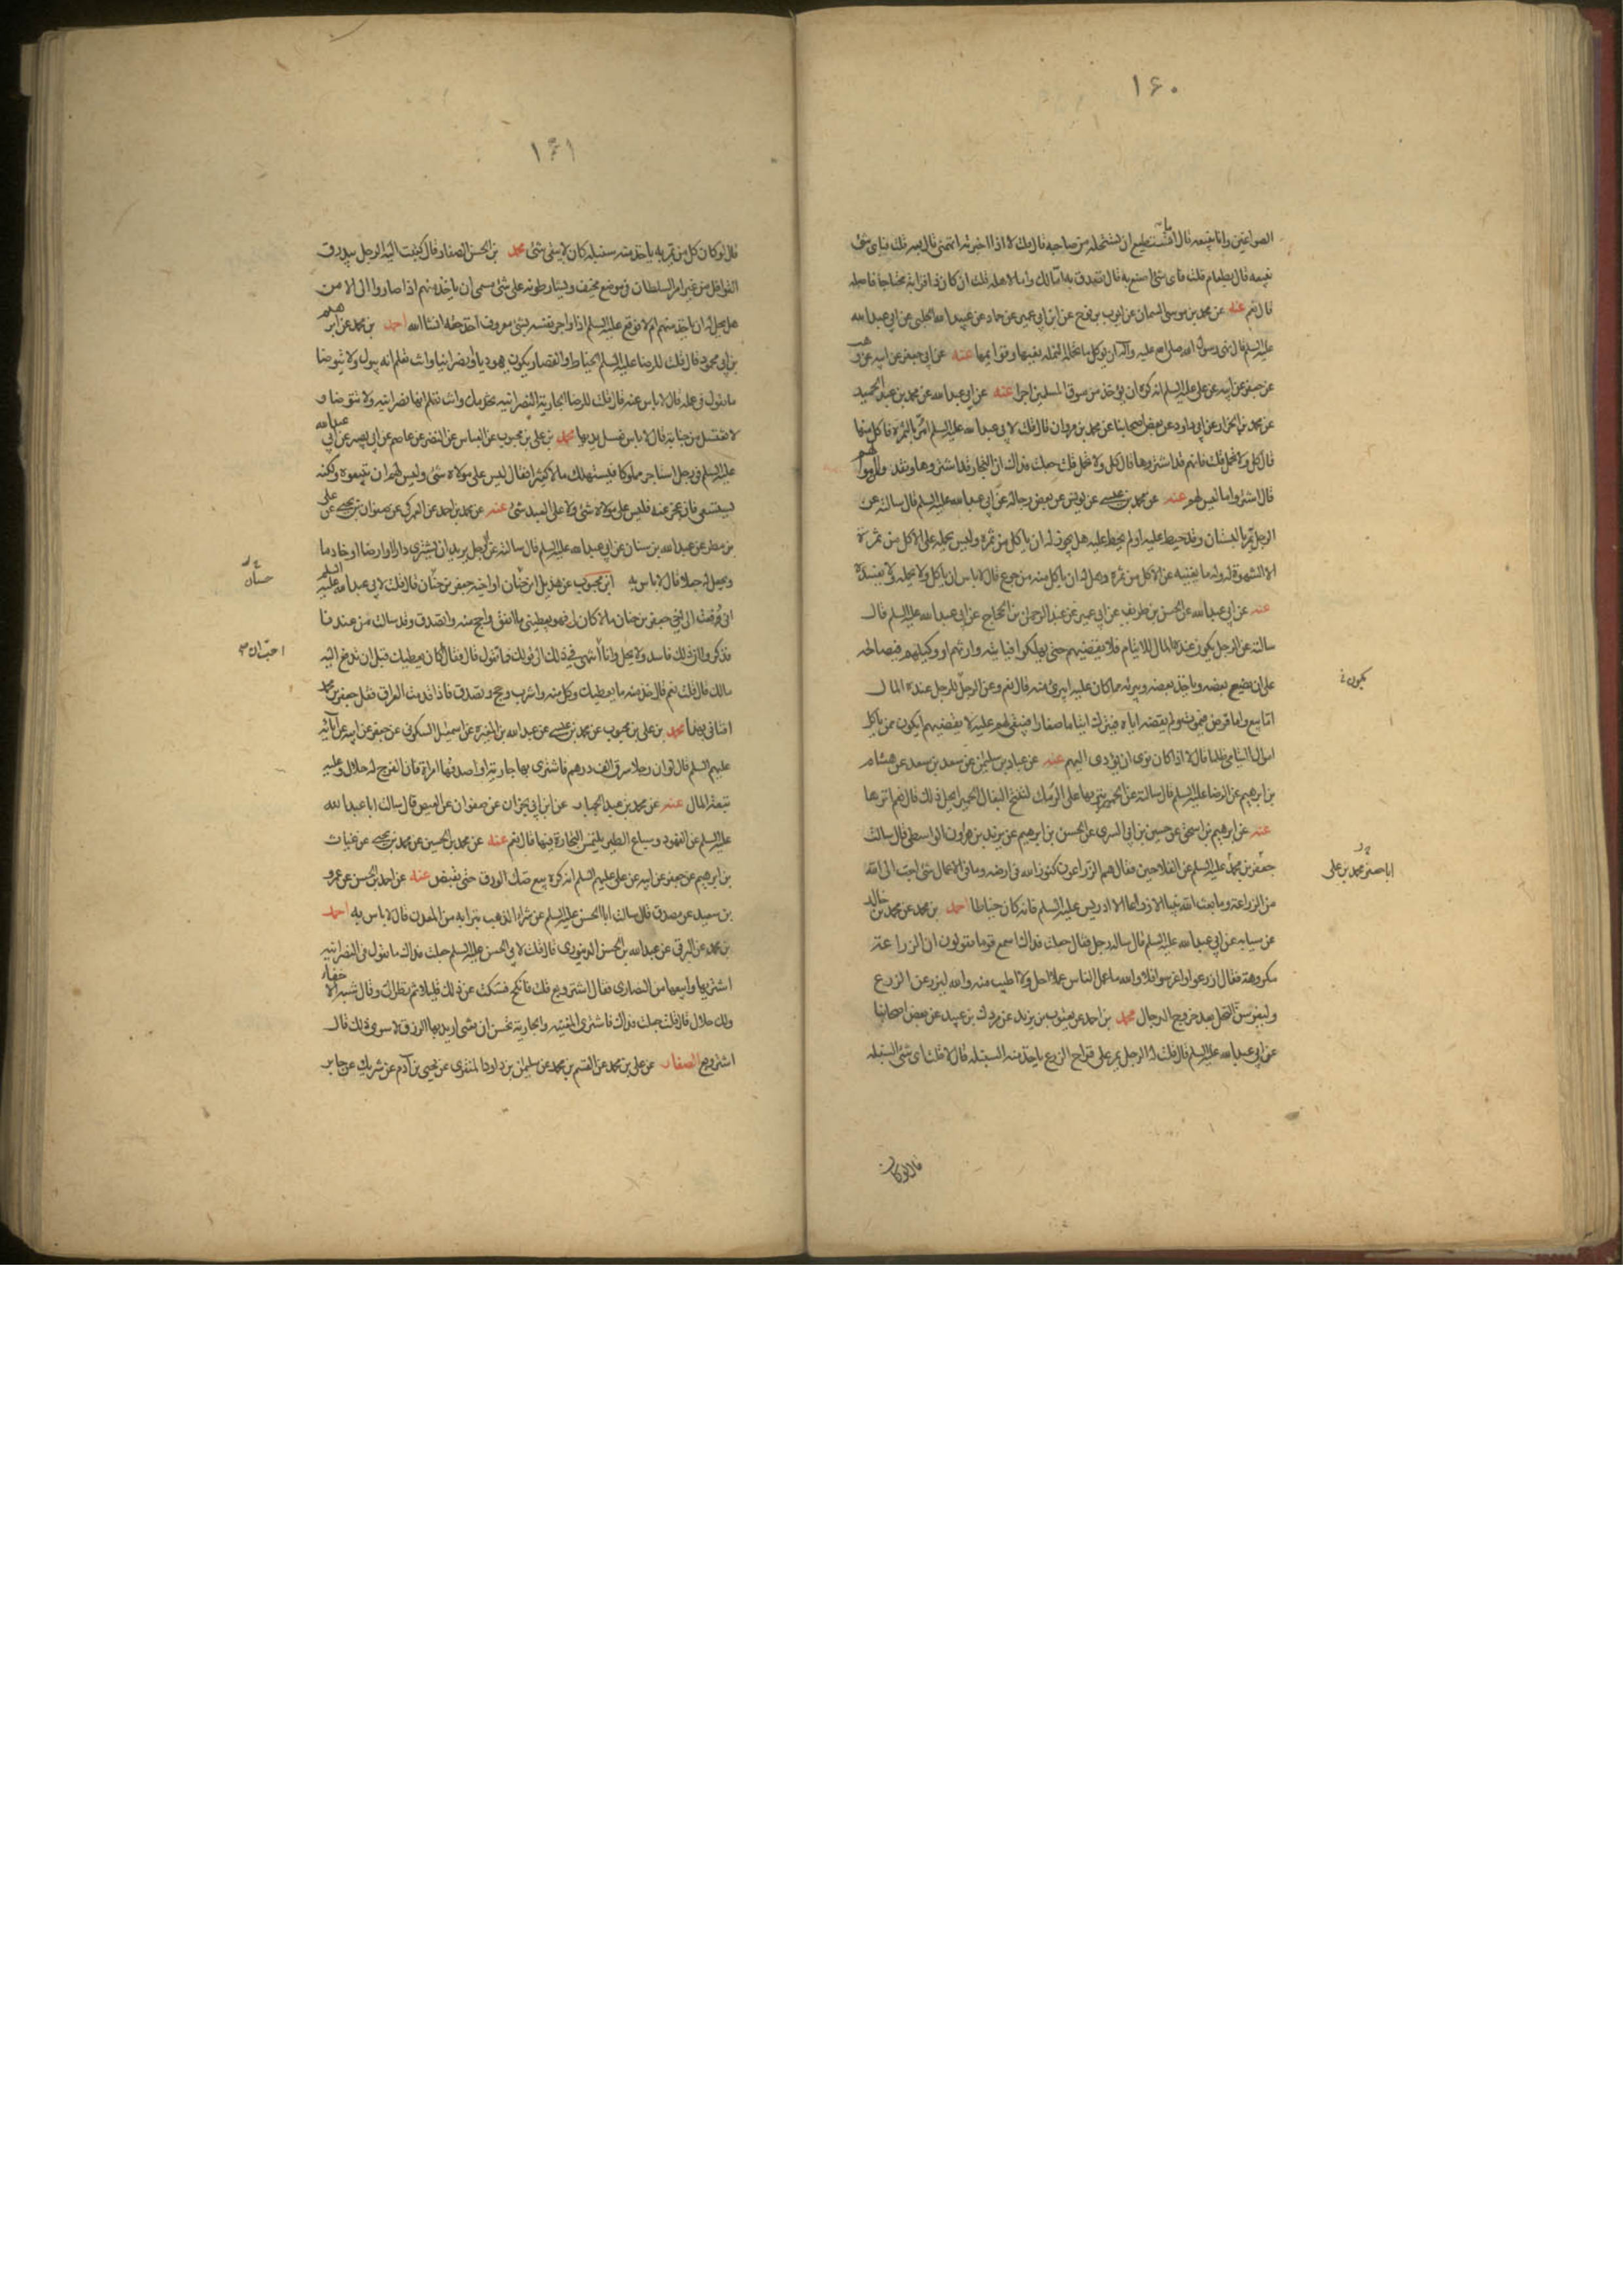 ١۶٠
الصواغين وانا نبيعه قال اما تستطيع ان تستحله من صاحبه قال قلت لا اذا اخبرته اتهمنى قال بعه قلت فباى شئ
نبيعه قال بطعام قلت فاى شئ اصنع به قال تصدق به اما لك واما لاهله قلت ان كان ذا قرابة محتاجا فاصله
قال نعم عنه عن محمد بن موسى السمان عن ايوب بن نوح عن ابن ابى عمير عن حماد عن عبيد الله الحلبى عن ابى عبد الله
عليه السلم قال نهى رسول الله صلى الله عليه وآله ان يؤكل ما تحمله النملة بفيها وقوائمها عنه عن ابى جعفر عن ابيه عن وهب
عن جعفر عن ابيه عن على عليه السلم انه كره ان يؤخذ من سوق المسلمين اجرا عنه عن ابى عبد الله عن محمد بن عبد الحميد
عن محمد بن الخزاز عن ابى داود عن بعض اصحابنا عن محمد بن مروان قال قلت لابى عبد الله عليه السلم امر بالثمرة فاكل منها
قال كل ولا تحمل قلت فانهم قد اشتروها قال كل ولا تحمل قلت جعلت فداك ان التجار قد اشتروها ونقدوا اموالهم
قال اشتروا ما ليس لهم عنه عن محمد بن عيسى عن يونس عن بعض رجاله عن ابى عبد الله عليه السلم قال سالته عن
الرجل يمر بالبستان وقد حيط عليه او لم يحط عليه هل يجوز له ان ياكل من ثمره وليس يحمله على الاكل من ثمره
الا الشهوة وله ما يغنيه عن الاكل من ثمره وهل له ان ياكل منه من جوع قال لا باس ان ياكل ولا يحمله ولا يفسده
عنه عن ابى عبد الله عن الحسن بن ظريف عن ابى عمير عن عبد الرحمن بن الحجاج عن ابى عبد الله عليه السلم قال
سالته عن الرجل يكون عنده المال للايتام فلا يعطيهم حتى يهلكوا فياتيه وارثهم او وكيلهم فيصالحه
على ان يضع بعضه وياخذ بعضه ويبرئه مما كان عليه ايبرئ منه قال نعم وعن الرجل للرجل عنده المال
يكون
اما بيع واما قرض فيموت ولم يقضه اياه فيترك ايتاما صغارا فيبقى لهم عليه لا يقضيهم ايكون ممن ياكل
اموال اليتامى ظلما قال لا اذا كان نوى ان يؤدى اليهم عنه عن عباد بن سليمن عن سعد بن سعد عن هشام
بن ابرهيم عن الرضا عليه السلم قال سالته عن الحمير ننزيها على الرمك لتنتج البغال الحمير ايحل ذلك قال نعم انزها
عنه عن ابرهيم بن اسحق عن حسين بن ابى السرى عن الحسن بن ابرهيم عن يزيد بن هرون الواسطى قال سالت
ابا جعفر محمد بن على
جعفر بن محمد عليه السلم عن الفلاحين فقال هم الزراعون كنوز الله فى ارضه وما فى الاعمال شئ احب الى الله
من الزراعة وما بعث الله نبيا الا زراعا الا ادريس عليه السلم فانه كان خياطا احمد بن محمد عن محمد بن خالد
عن سيابه عن ابى عبد الله عليه السلم قال ساله رجل فقال جعلت فداك اسمع قوما يقولون ان الزراعة
مكروهة فقال ازرعوا واغرسوا فلا والله ما عمل الناس عملا احل ولا اطيب منه والله ليزرعن الزرع
وليغرسن النخل بعد خروج الدجال محمد بن احمد عن يعقوب بن يزيد عن مروك بن عبيد عن بعض اصحابنا
عن ابى عبد الله عليه السلم قال قلت له الرجل يمر على قراح الزرع ياخذ منه السنبلة قال لا قلت اى شئ السنبلة
قال لو كان
١۶١
قال لو كان كل من يمر به ياخذ منه سنبلة كان لا يبقى شئ محمد بن الحسن الصفار قال كتبت اليه الرجل يبدرق
القوافل من غير امر السلطان فى موضع مخيف ويشارطونه على شئ مسمى ان ياخذه منهم اذا صاروا الى الامن
هل يحل له ان ياخذ منهم ام لا فوقع عليه السلم اذا واجر نفسه بشئ معروف اخذ حقه انشا الله احمد بن محمد عن ابرهيم
بن ابى محمود قال قلت للرضا عليه السلم الخياط والقصار يكون يهوديا او نصرانيا وانت تعلم انه يبول ولا يتوضا
ما تقول فى عمله قال لا باس عنه قال قلت للرضا الجارية النصرانية تخدمك وانت تعلم انها نصرانية ولا تتوضا و
لا تغتسل من جنابة قال لا باس تغسل يديها محمد بن على بن محبوب عن العباس عن النضر عن عاصم عن ابى بصير عن ابى عبد الله
عليه السلم فى رجل استاجر مملوكا فيستهلك مالا كثيرا فقال ليس على مولاه شئ وليس لهم ان يبيعوه ولكنه
يستسعى فان عجز عنه فليس على مولاه شئ ولا على العبد شئ عنه عن محمد بن احمد عن العمركى عن صفوان بن يحيى عن على
بن مطر عن عبد الله بن سنان عن ابى عبد الله عليه السلم قال سالته عن الرجل يريد ان يشترى دارا او ارضا او خادما
ويجعل له جعلا قال لا باس به ابن محبوب عن هذيل بن حنان اخى جعفر بن حنان قال قلت لابى عبد الله عليه السلم
حسان
انى دفعت الى اخى جعفر بن حنان مالا كان لى فهو يعطينى ما انفق واحج منه واتصدق وقد سالت من عندنا
فذكروا ان ذلك فاسد ولا يحل وانا اشهى فى ذلك ان فما تقول قال فقال كان يعطيك قبل ان تدفع اليه
احب ان
مالك قال قلت نعم قال خذ منه ما يعطيك وكل منه واشرب وحج وتصدق فاذا قدمت العراق فقل جعفر بن محمد
افتانى بهذا محمد بن على بن محبوب عن محمد بن عيسى عن عبد الله بن المغيرة عن اسمعيل السكونى عن جعفر عن ابيه عن آبائه
عليهم السلم قال لو ان رجلا سرق الف درهم فاشترى بها جارية او اصدقها امراة فان الفرج له حلال وعليه
تبعة المال عنه عن محمد بن عبد الجبار عن ابن ابى نجران عن صفوان عن العيص قال سالت ابا عبد الله
عليه السلم عن الفهود وسباع الطير يلتمس التجارة فيها قال نعم عنه عن محمد بن الحسين عن محمد بن يحيى عن غياث
بن ابرهيم عن جعفر عن ابيه عن على عليهم السلم انه كره بيع صك الورق حتى يقبض عنه عن احمد بن الحسن عن عمرو
بن سعيد عن مصدق قال سالت ابا الحسن عليه السلم عن شراء الذهب بترابه من المعدن قال لا باس به احمد
بن محمد عن البرقى عن عبد الله بن الحسن الدينورى قال قلت لابى الحسن عليه السلم جعلت فداك ما تقول فى النصرانية
اشتريها وابيعها من النصارى فقال اشتر وبع قلت فانكح فسكت عن ذلك قليلا ثم نظر الى وقال شبه الاخفاء
ولك حلال قال قلت جعلت فداك فاشترى المغنية والجارية تحسن ان تغنى اريد بها الرزق لا سوى ذلك قال
اشتر وبع الصفار عن على بن محمد عن القسم بن محمد عن سليمن بن داود المنقرى عن يحيى بن آدم عن شريك عن جابر